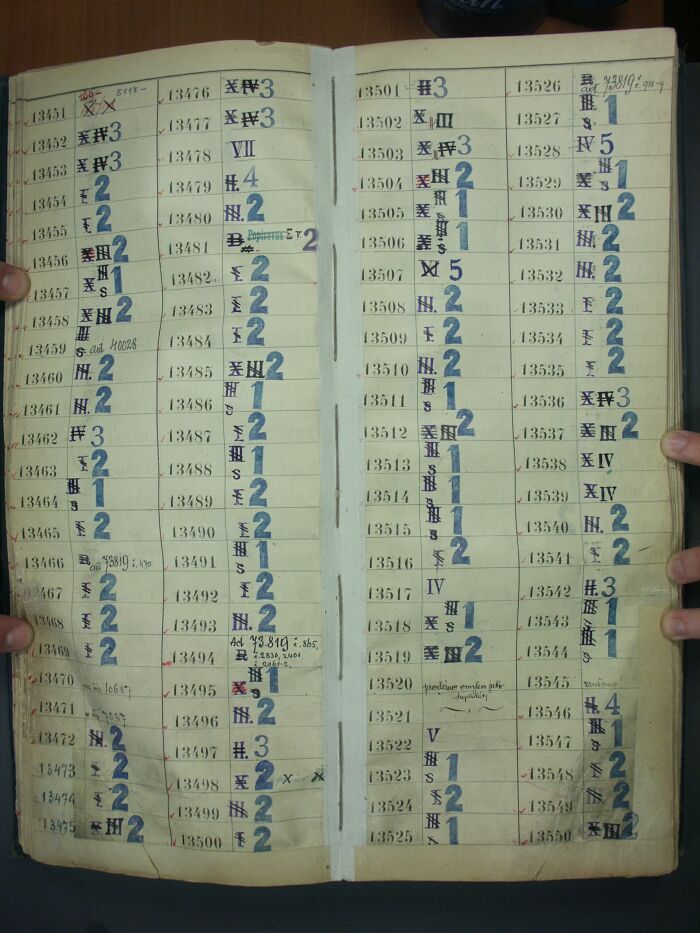 13451 5117-
13452 X IV 3
13453 X IV 3
13454 I 2
13455 I 2
13456 X III 2
13457 X III s 1
13458 X III 2
13459 III s ad 40028
13460 III. 2
13461 III. 2
13462 IV 3
13463 I 2
13464 III s 1
13465 I 2
13466 B ad 73819 č. 470
13467 I 2
13468 I 2
13469 I 2
13470
13471
13472 III. 2
13473 I 2
13474 I 2
13475 X III 2
13476 X IV 3
13477 X IV 3
13478 VII
13479 II. 4
13480 III. 2
13481 B Popisovna E v. 2
13482 I. 2
13483 I 2
13484 I 2
13485 X III 2
13486 III s 1
13487 I 2
13488 III s 1
13489 I 2
13490 I 2
13491 III s 1
13492 I 2
13493 III. 2
13494 Ad 73.819 č. 865,
B č. 2830, 2401,
č. 2061-2,
13495 X III s 1
13496 III. 2
13497 II. 3
13498 X 2 X X
13499 III. 2
13500 I 2
13501 II 3
13502 X III
13503 X IV 3
13504 X III 2
13505 X III s 1
13506 X III s 1
13507 VI 5
13508 III. 2
13509 I 2
13510 III. 2
13511 III s 1
13512 X III 2
13513 III s 1
13514 III s 1
13515 III s 1
13516 I 2
13517 IV
13518 X III s 1
13519 X III 2
13520 omylem
13521
13522 V
13523 III s 1
13524 I 2
13525 III s 1
13526 B ad 73819
13527 III s 1
13528 IV 5
13529 X III s 1
13530 X III 2
13531 III. 2
13532 III. 2
13533 I 2
13534 I 2
13535 I 2
13536 X IV 3
13537 X III 2
13538 X IV
13539 X IV
13540 III. 2
13541 I 2
13542 II. 3
13543 III s 1
13544 III s 1
13545
13546 II. 4
13547 III s 1
13548 I 2
13549 III. 2
13550 X III 2